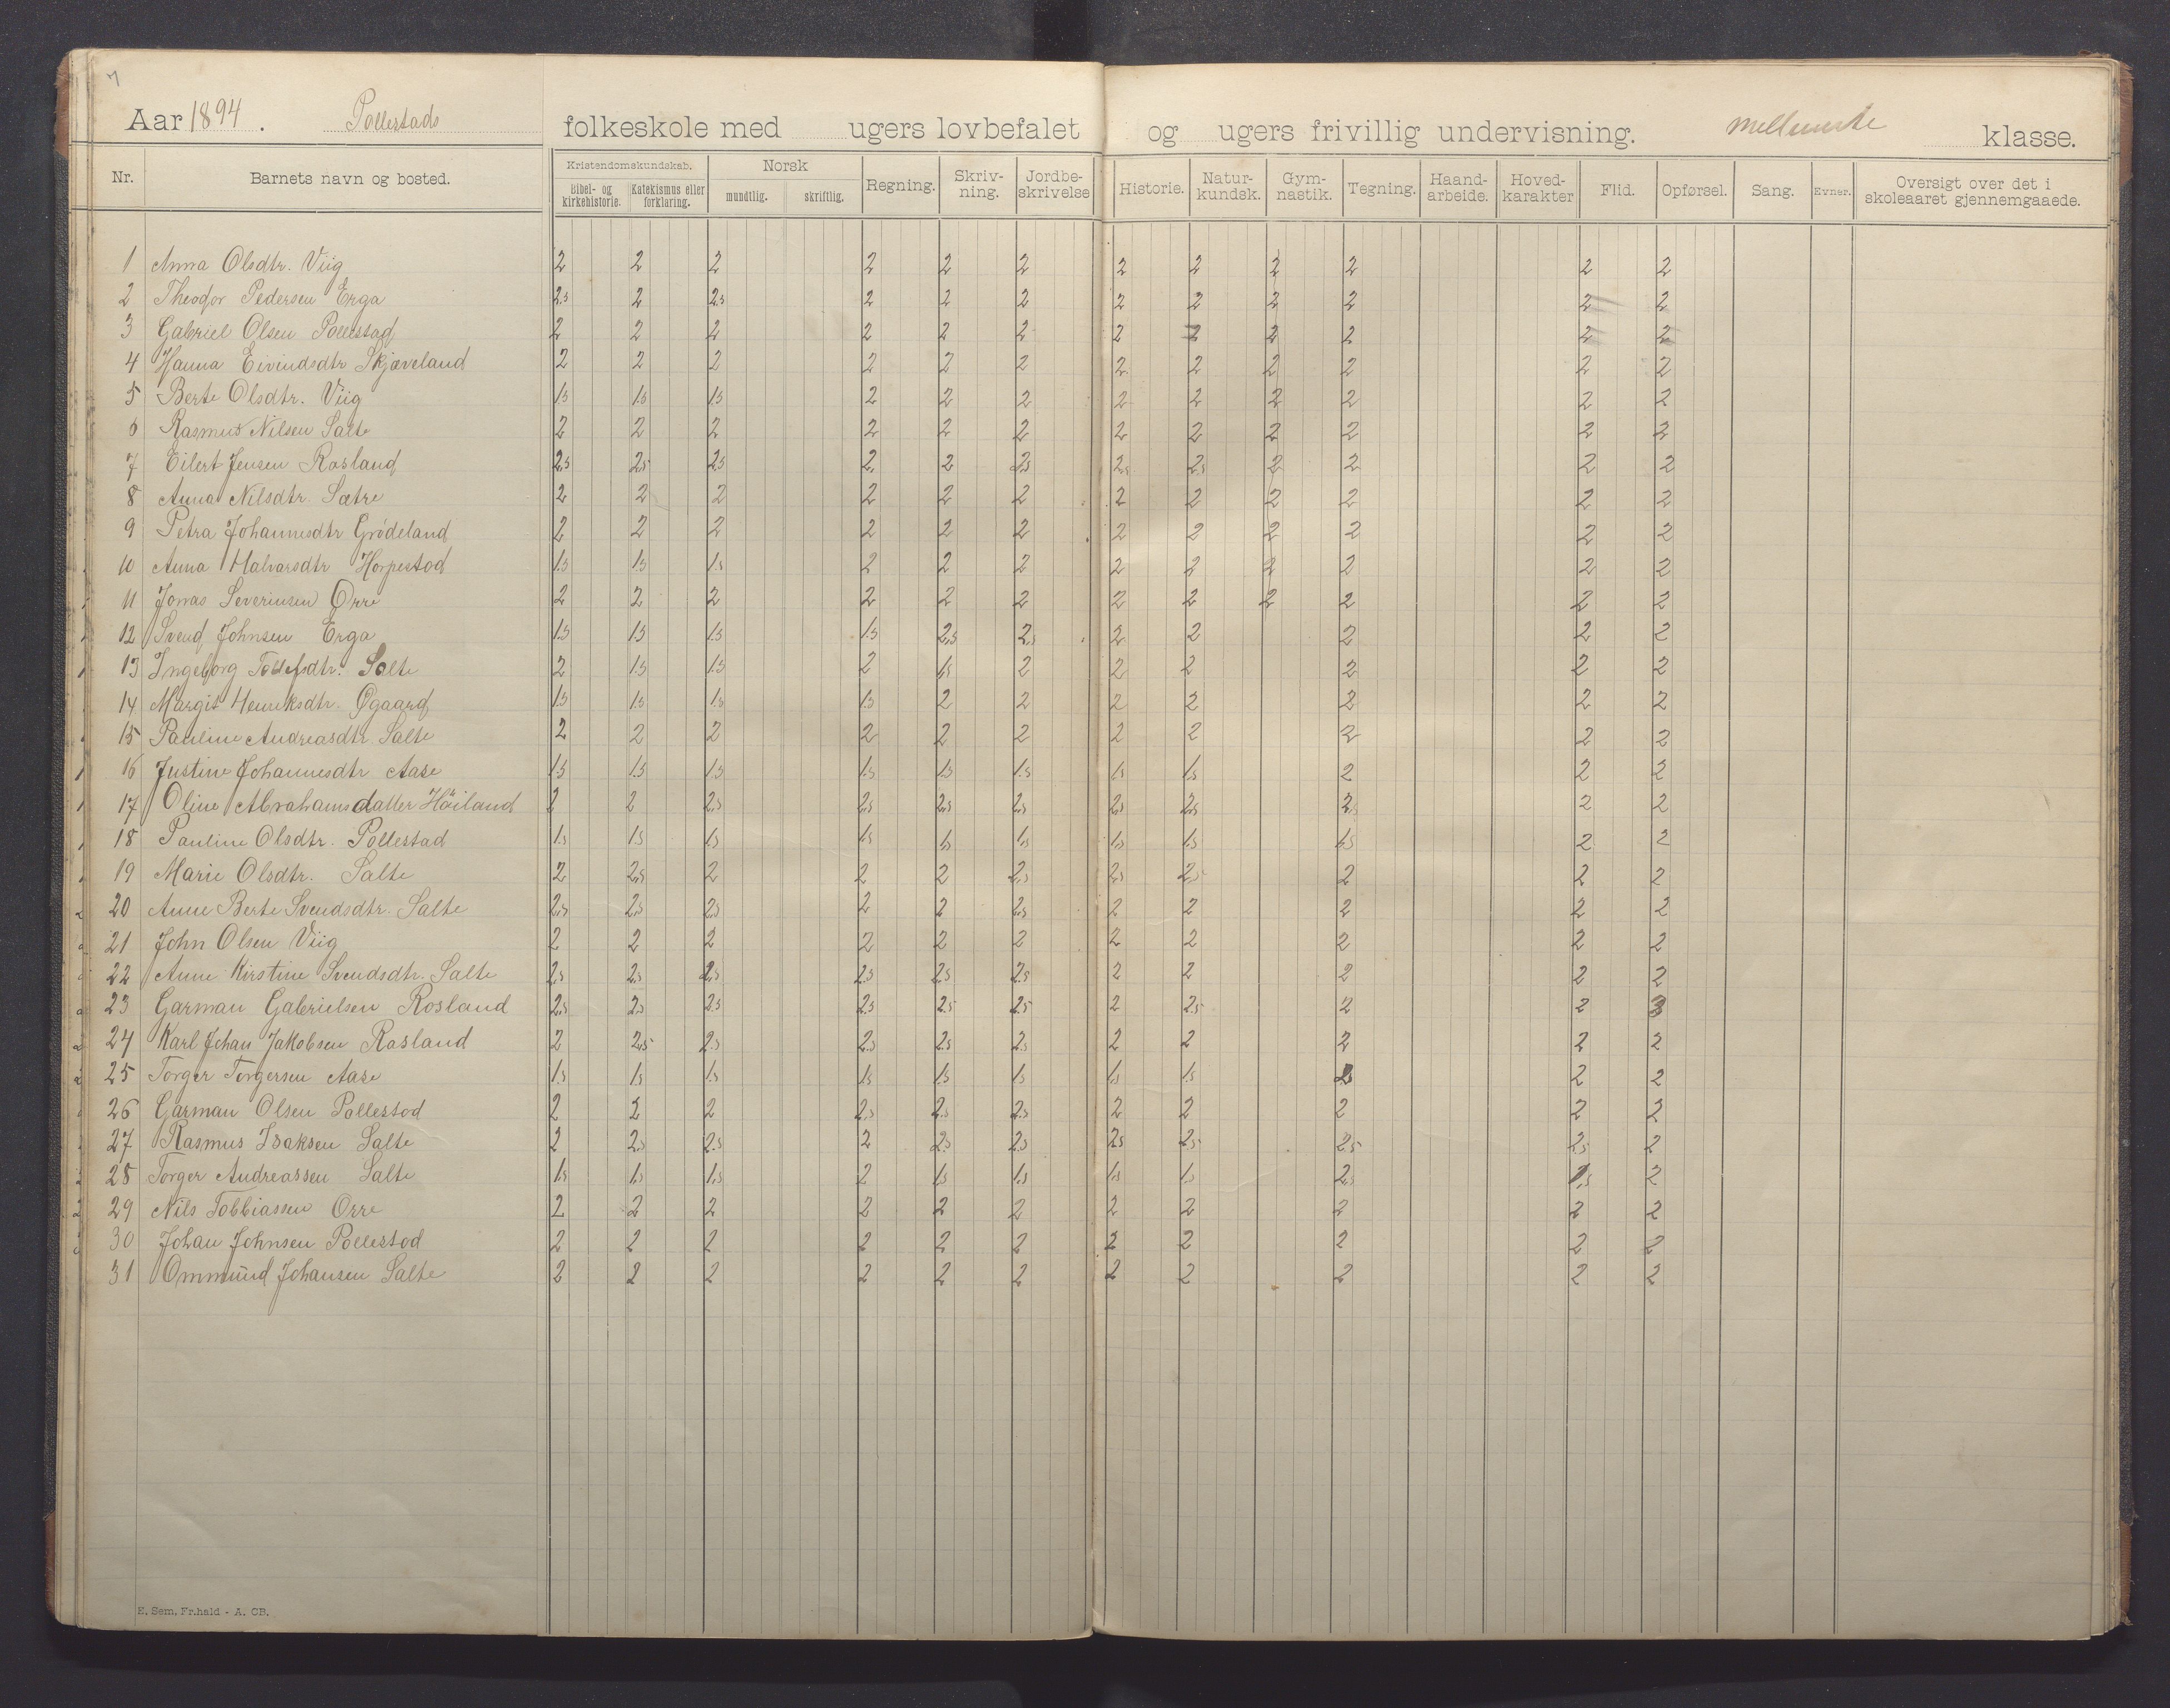 7
Aar 1894. Pollestads folkeskole med ugers lovbefalet og ugers frivillig undervisning. mellemste klasse.
Nr. Barnets navn og bosted. Kristendomskundskab. Bibel- og kirkehistorie. Katekismus eller forklaring. Norsk mundtlig. skriftlig. Regning. Skriv-ning. Jordbe-skrivelse Historie. Natur-kundsk. Gym-nastik. Tegning. Haand-arbeide. Hoved-karakter Flid. Opførsel. Sang. Evner. Oversigt over det i skoleaaret gjennemgaaede.
1 Anna Olsdtr. Viig 2 2 2 2 2 2 2 2 2 2 2 2
2 Theodor Pedersen Erga 2.5 2 2.5 2 2 2 2 2 2 2 2 2
3 Gabriel Olsen Pollestad 2 2 2 2 2 2 2 2 2 2 2 2
4 Hanna Eivindsdtr Skjæveland 2 2 2 2 2 2 2 2 2 2 2 2
5 Berte Olsdtr. Viig 1.5 1.5 1.5 2 2 2 2 2 2 2 2 2
6 Rasmus Nilsen Salte 2 2 2 2 2 2 2 2 2 2 2 2
7 Eilert Jensen Rosland 2.5 2.5 2.5 2 2 2.5 2.5 2.5 2 2 2 2
8 Anna Nilsdtr. Sætre 2 2 2 2 2 2 2 2 2 2 2 2
9 Petra Johannesdtr Grödeland 2 2 2 2 2 2 2 2 2 2 2 2
10 Anna Halvarsdtr Horpestod 1.5 1.5 1.5 2 2 2 2 2 2 2 2 2
11 Jonas Severinsen Orre 2 2 2 2 2 2 2 2 2 2 2 2
12 Svend Johnsen Erga 1.5 1.5 1.5 1.5 2.5 2.5 2 2 2 2 2
13 Ingeborg Tollefsdtr. Salte 2 1.5 1.5 2 1.5 2 2 2 2 2 2
14 Margit Henriksdtr. Øgaard 1.5 1.5 1.5 1.5 2 2 2 2 2 2 2
15 Pauline Andreasdtr. Salte 2 2 2 2 2 2 2 2 2 2 2
16 Justine Johannesdtr Aase 1.5 1.5 1.5 1.5 1.5 1.5 1.5 1.5 2 2 2
17 Oline Abrahamsdatter Höiland 2 2 2.5 2.5 2.5 2.5 2.5 2.5 2.5 2 2
18 Pauline Olsdtr. Pollestad 1.5 1.5 1.5 1.5 1.5 1.5 1.5 1.5 1.5 2 2
19 Marie Olsdtr. Salte 2 2.5 2 2 2 2.5 2.5 2.5 2 2 2
20 Anne Berte Svendsdtr. Salte 2.5 2.5 2.5 2 2 2.5 2 2 2 2 2
21 John Olsen Viig 2 2 2 2 2 2 2 2 2 2 2
22 Anne Kirstine Svendsdtr. Salte 2.5 2.5 2.5 2.5 2.5 2.5 2 2 2 2 2
23 Garman Gabrielsen Rosland 2.5 2.5 2.5 2.5 2.5 2.5 2 2.5 2 2 3
24 Karl Johan Jakobsen Rosland 2 2.5 2.5 2.5 2.5 2.5 2 2 2 2 2
25 Torger Torgersen Aase 1.5 1.5 1.5 1.5 1.5 1.5 1.5 1.5 2 2
26 Garman Olsen Pollestod 2 2 2 2.5 2.5 2.5 2 2 2 2 2
27 Rasmus Isaksen Salte 2 2.5 2.5 2 2.5 2.5 2.5 2.5 2.5 2.5 2
28 Torger Andreassen Salte 1.5 1.5 1.5 2 1.5 1.5 1.5 1.5 2.5 1.5 2
29 Nils Tobbiassen Orre 2 2 2 2 2 2 2 2 2 2 2
30 Johan Johnsen Pollestod 2 2 2 2 2 2 2 2 2 2 2
31 Ommund Johansen Salte 2 2 2 2 2 2 2 2 2 2 2
E. Sem, Fr.hald - A. CB.